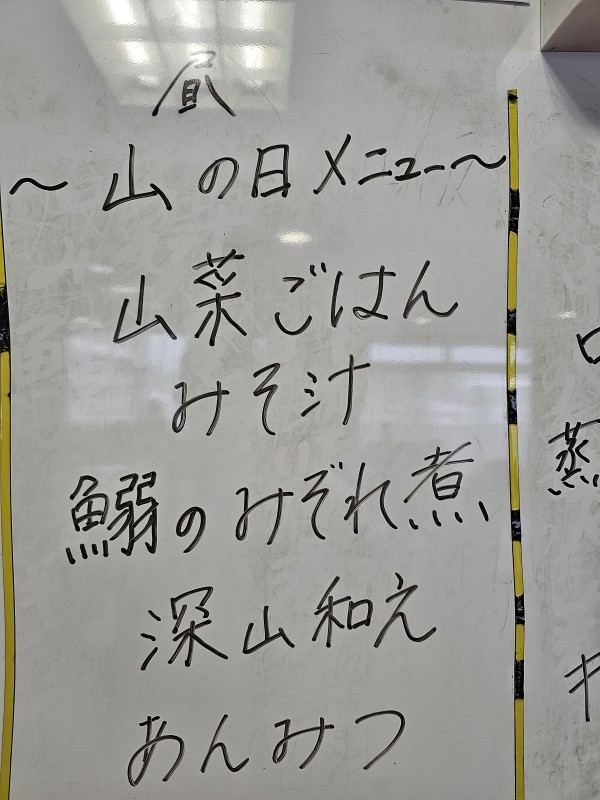 昼
～山の日メニュー～
山菜ごはん
みそ汁
鰯のみぞれ煮
深山和え
あんみつ
蒸